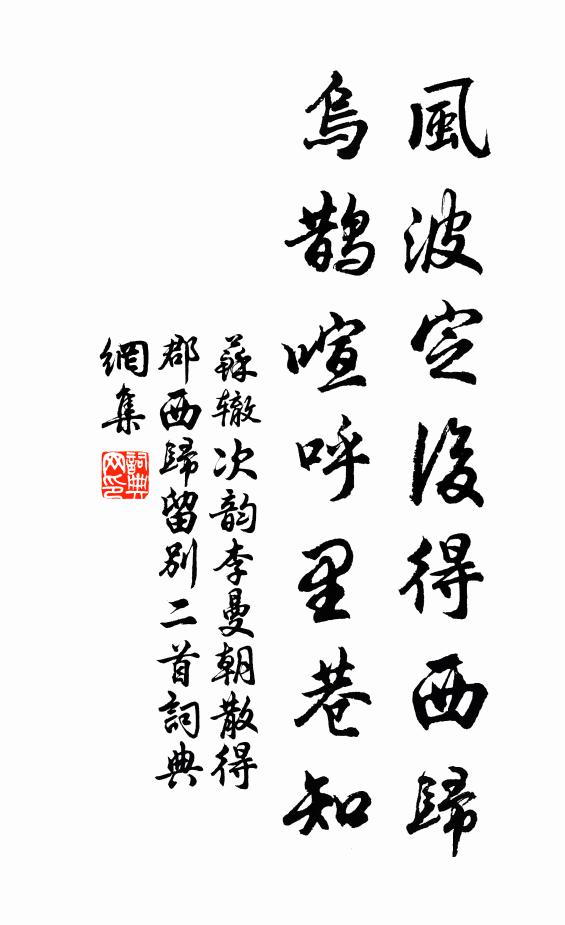 風波定後得西歸
烏鵲喧呼里巷知
蘇辙次韵李曼朝散得
郡西歸留别二首詞典
網集
詞典網印